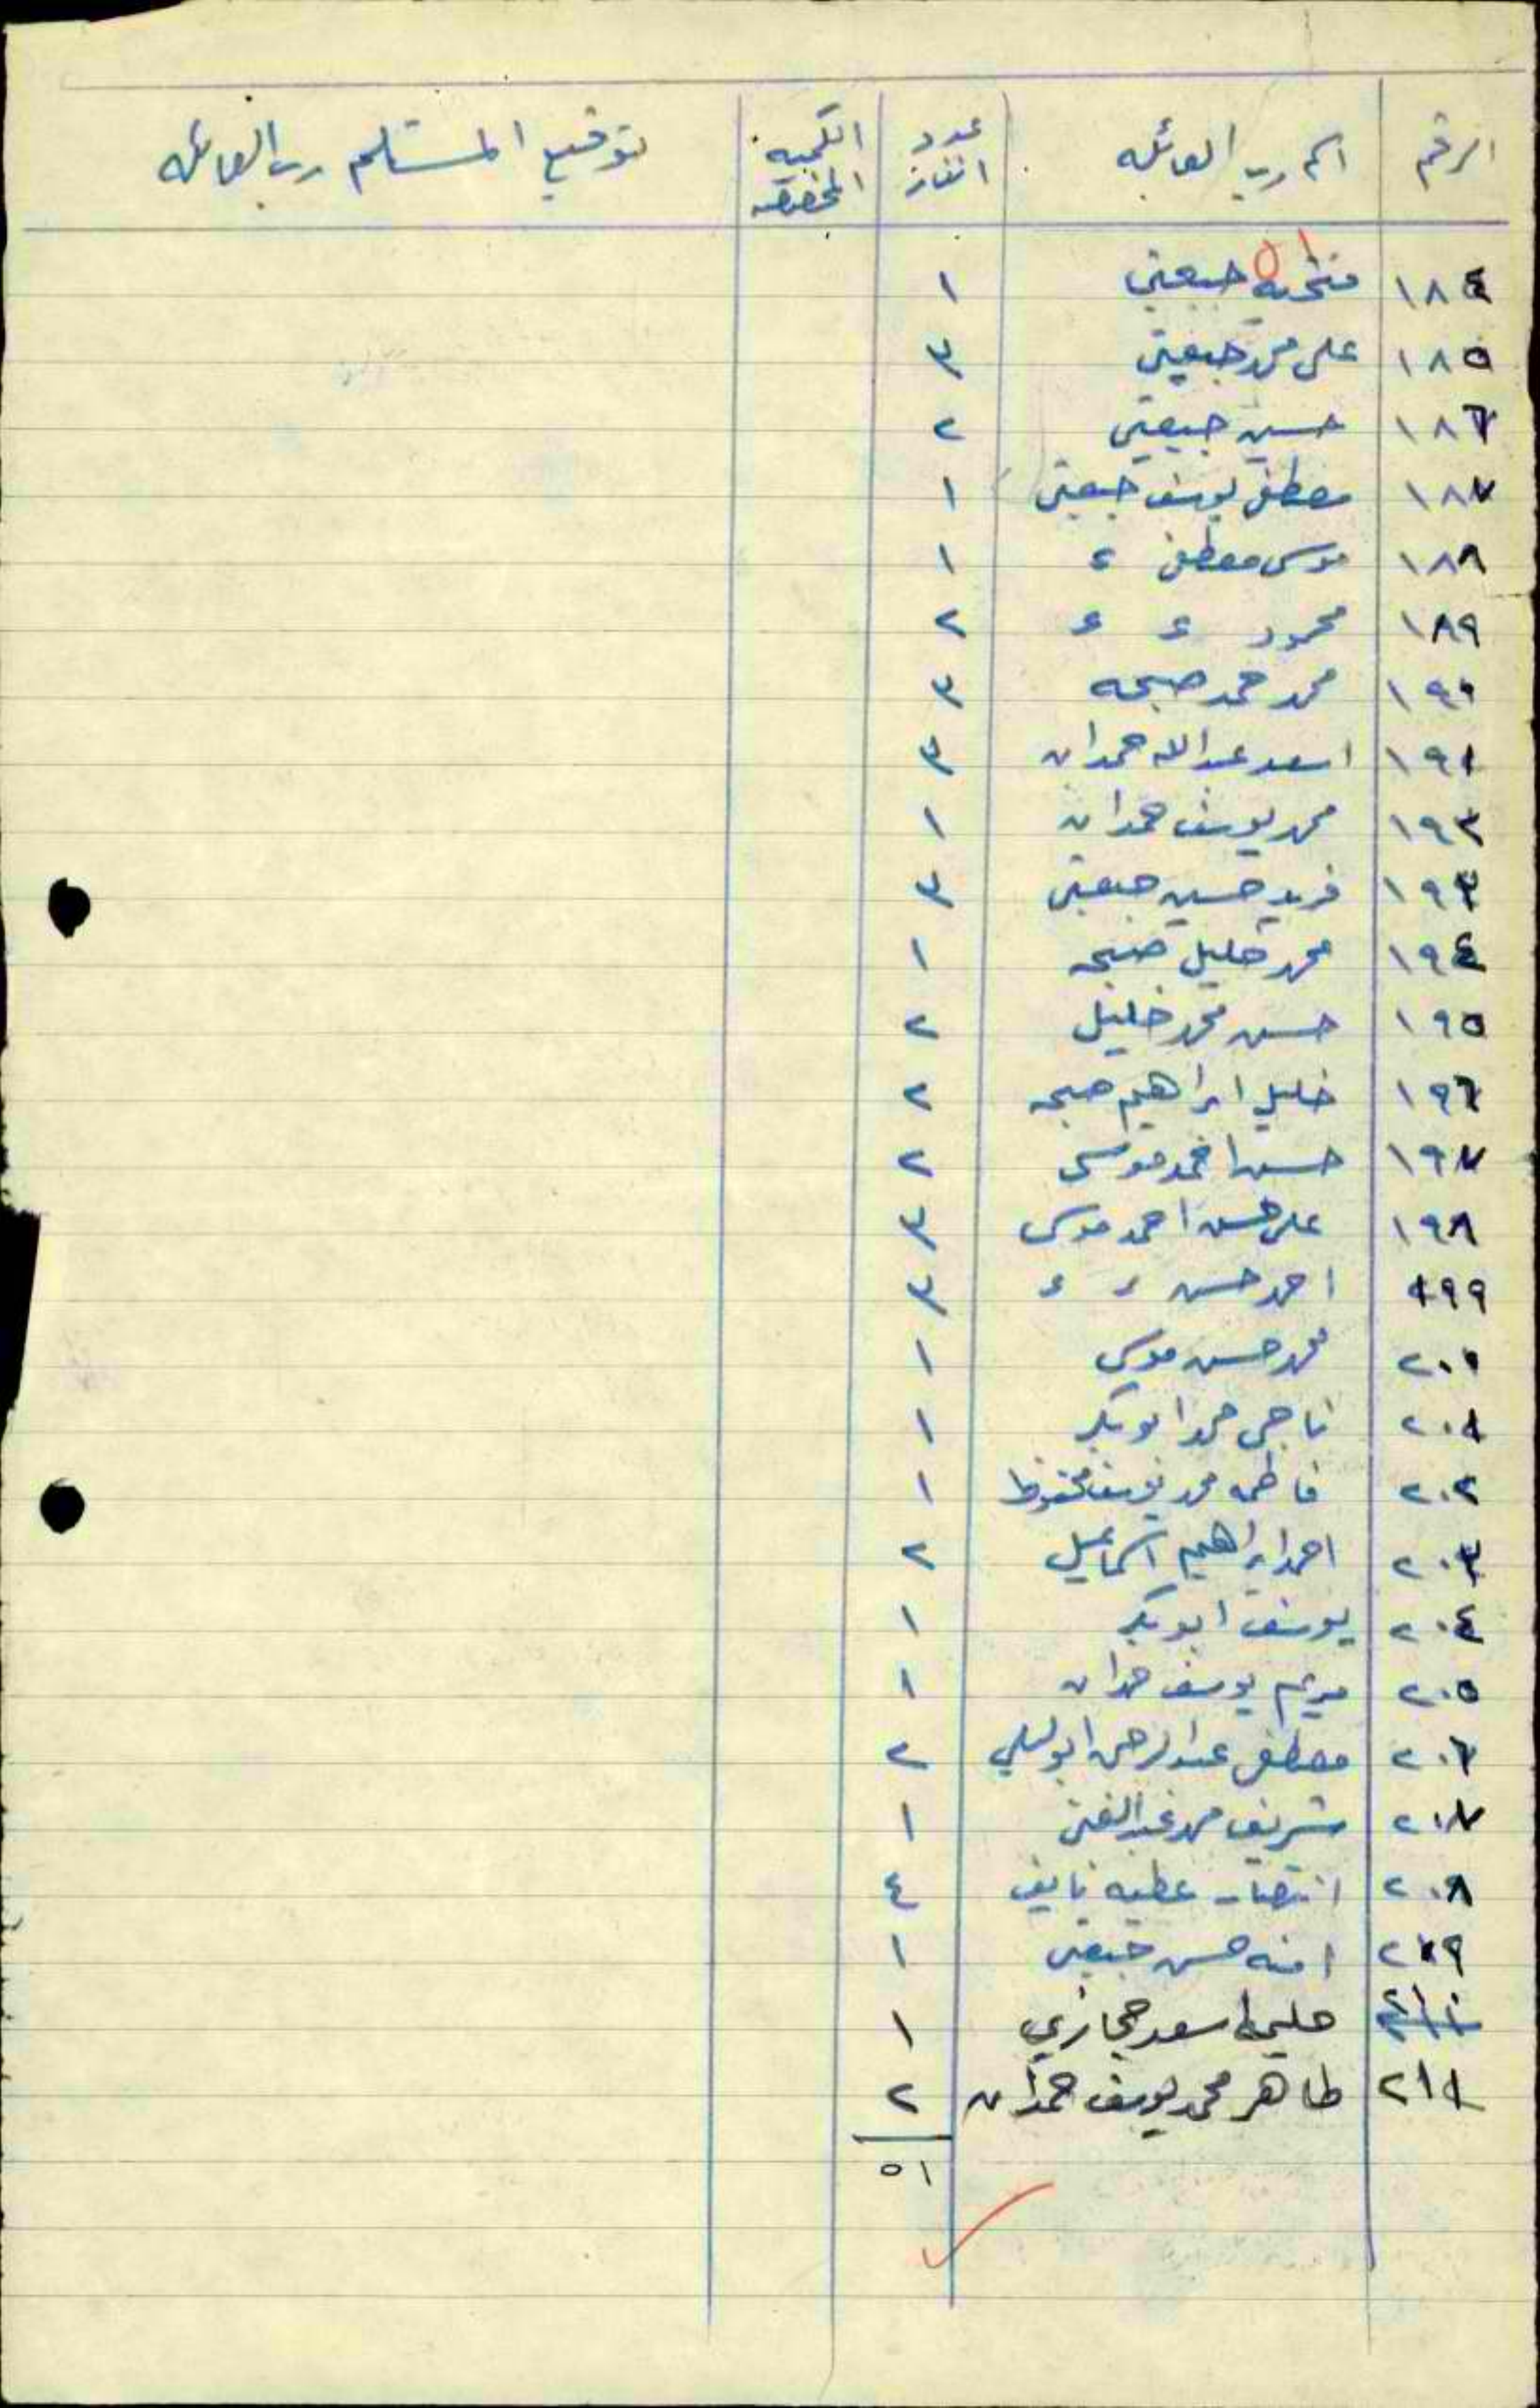 الرقم اسم رب العائله عدد انفار الكميه المخصصه توقيع المستلم رب العائله
١٨٤ جبعيتي ١
١٨٥ علي محمد جبعيتي ٣
١٨٦ حسين جبعيتي ٢
١٨٧ مصطفى يوسف جبعيتي ١
١٨٨ موسى مصطفى ء ١
١٨٩ محمود ء ء ٢
١٩٠ محمد حمد صبحه ٣
١٩١ اسعد عبدالله حمدان ٣
١٩٢ محمد يوسف حمدان ١
١٩٣ فريد حسين جبعيتي ٣
١٩٤ محمد خليل صبحه ١
١٩٥ حسن محمد خليل ٢
١٩٦ خليل ابراهيم صبحه ٢
١٩٧ حسن احمد موسى ٢
١٩٨ علي حسن احمد موسى ٣
١٩٩ احمد حسن ء ء ٣
٢٠٠ محمد حسن موسى ١
٢٠١ ناجي محمد ابو بكر ١
٢٠٢ فاطمه محمد يوسف محفوظ ١
٢٠٣ احمد ابراهيم اسماعيل ٢
٢٠٤ يوسف ابو بكر ١
٢٠٥ مريم يوسف حمدان ١
٢٠٦ مصطفى عبدالرحمن ٢
٢٠٧ شريف محمد عبدالغني ١
٢٠٨ انتصار عطيه نايف ٤
٢٠٩ امنه حسن جبعيتي ١
٢١٠ حليمه اسعد حجازي ١
٢١١ طاهر محمد يوسف حمدان ٢
٥١